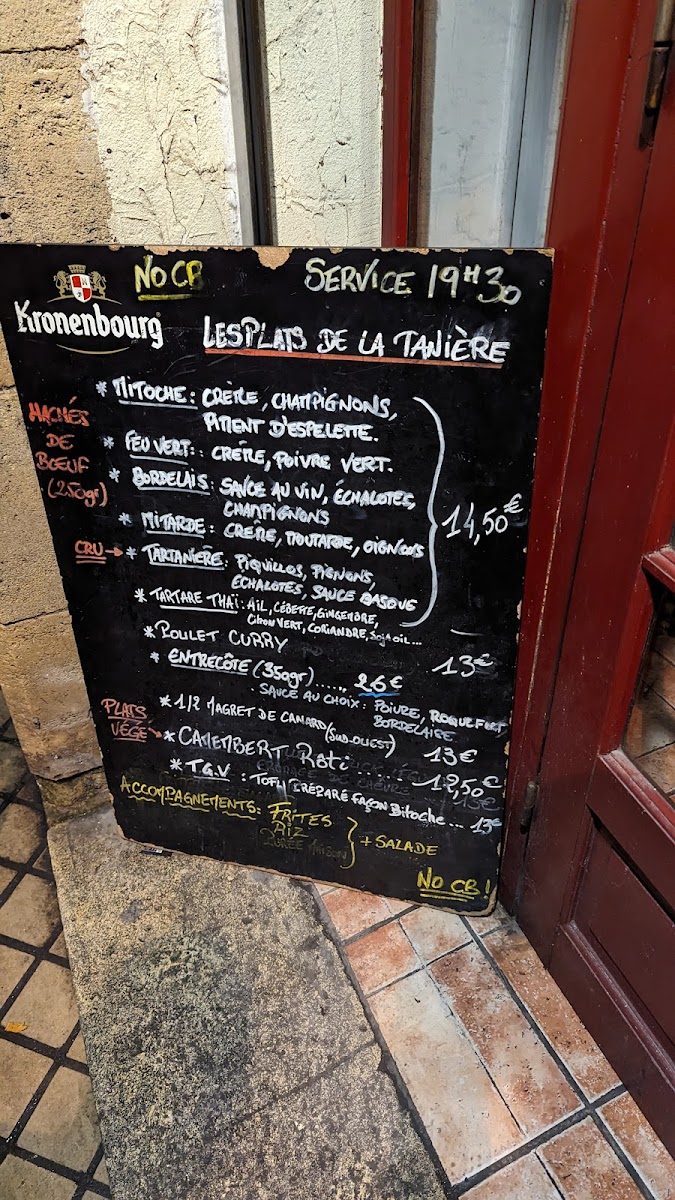 NO CB
SERVICE 19H30
Kronenbourg
LES PLATS DE LA TANIÈRE
HACHÉS
DE
BŒUF
(250gr)
* MITOCHE : CRÈME, CHAMPIGNONS,
PIMENT D'ESPELETTE.
* FEU VERT : CRÈME, POIVRE VERT.
* BORDELAIS : SAUCE AU VIN, ÉCHALOTES,
CHAMPIGNONS
* MITARDE : CRÈME, MOUTARDE, OIGNONS
14,50€
CRU → * TARTANIERE : PIQUILLOS, PIGNONS,
ECHALOTES, SAUCE BASQUE
* TARTARE THAÏ : AIL, CÉBETTE, GINGEMBRE,
CITRON VERT, CORIANDRE, SOJA OIL...
* POULET CURRY 13€
* ENTRECÔTE (350gr)..... 26€
SAUCE AU CHOIX : POIVRE, ROQUEFORT
BORDELAISE
* 1/2 MAGRET DE CANARD (SUD-OUEST) 13€
PLATS
VÉGÉ
* CAMEMBERT Roti ...... 12,50€
* T.G.V : TOFU PRÉPARÉ FAÇON Bitoche ... 13€
ACCOMPAGNEMENTS : FRITES
RIZ
PURÉE MAISON
+ SALADE
NO CB !